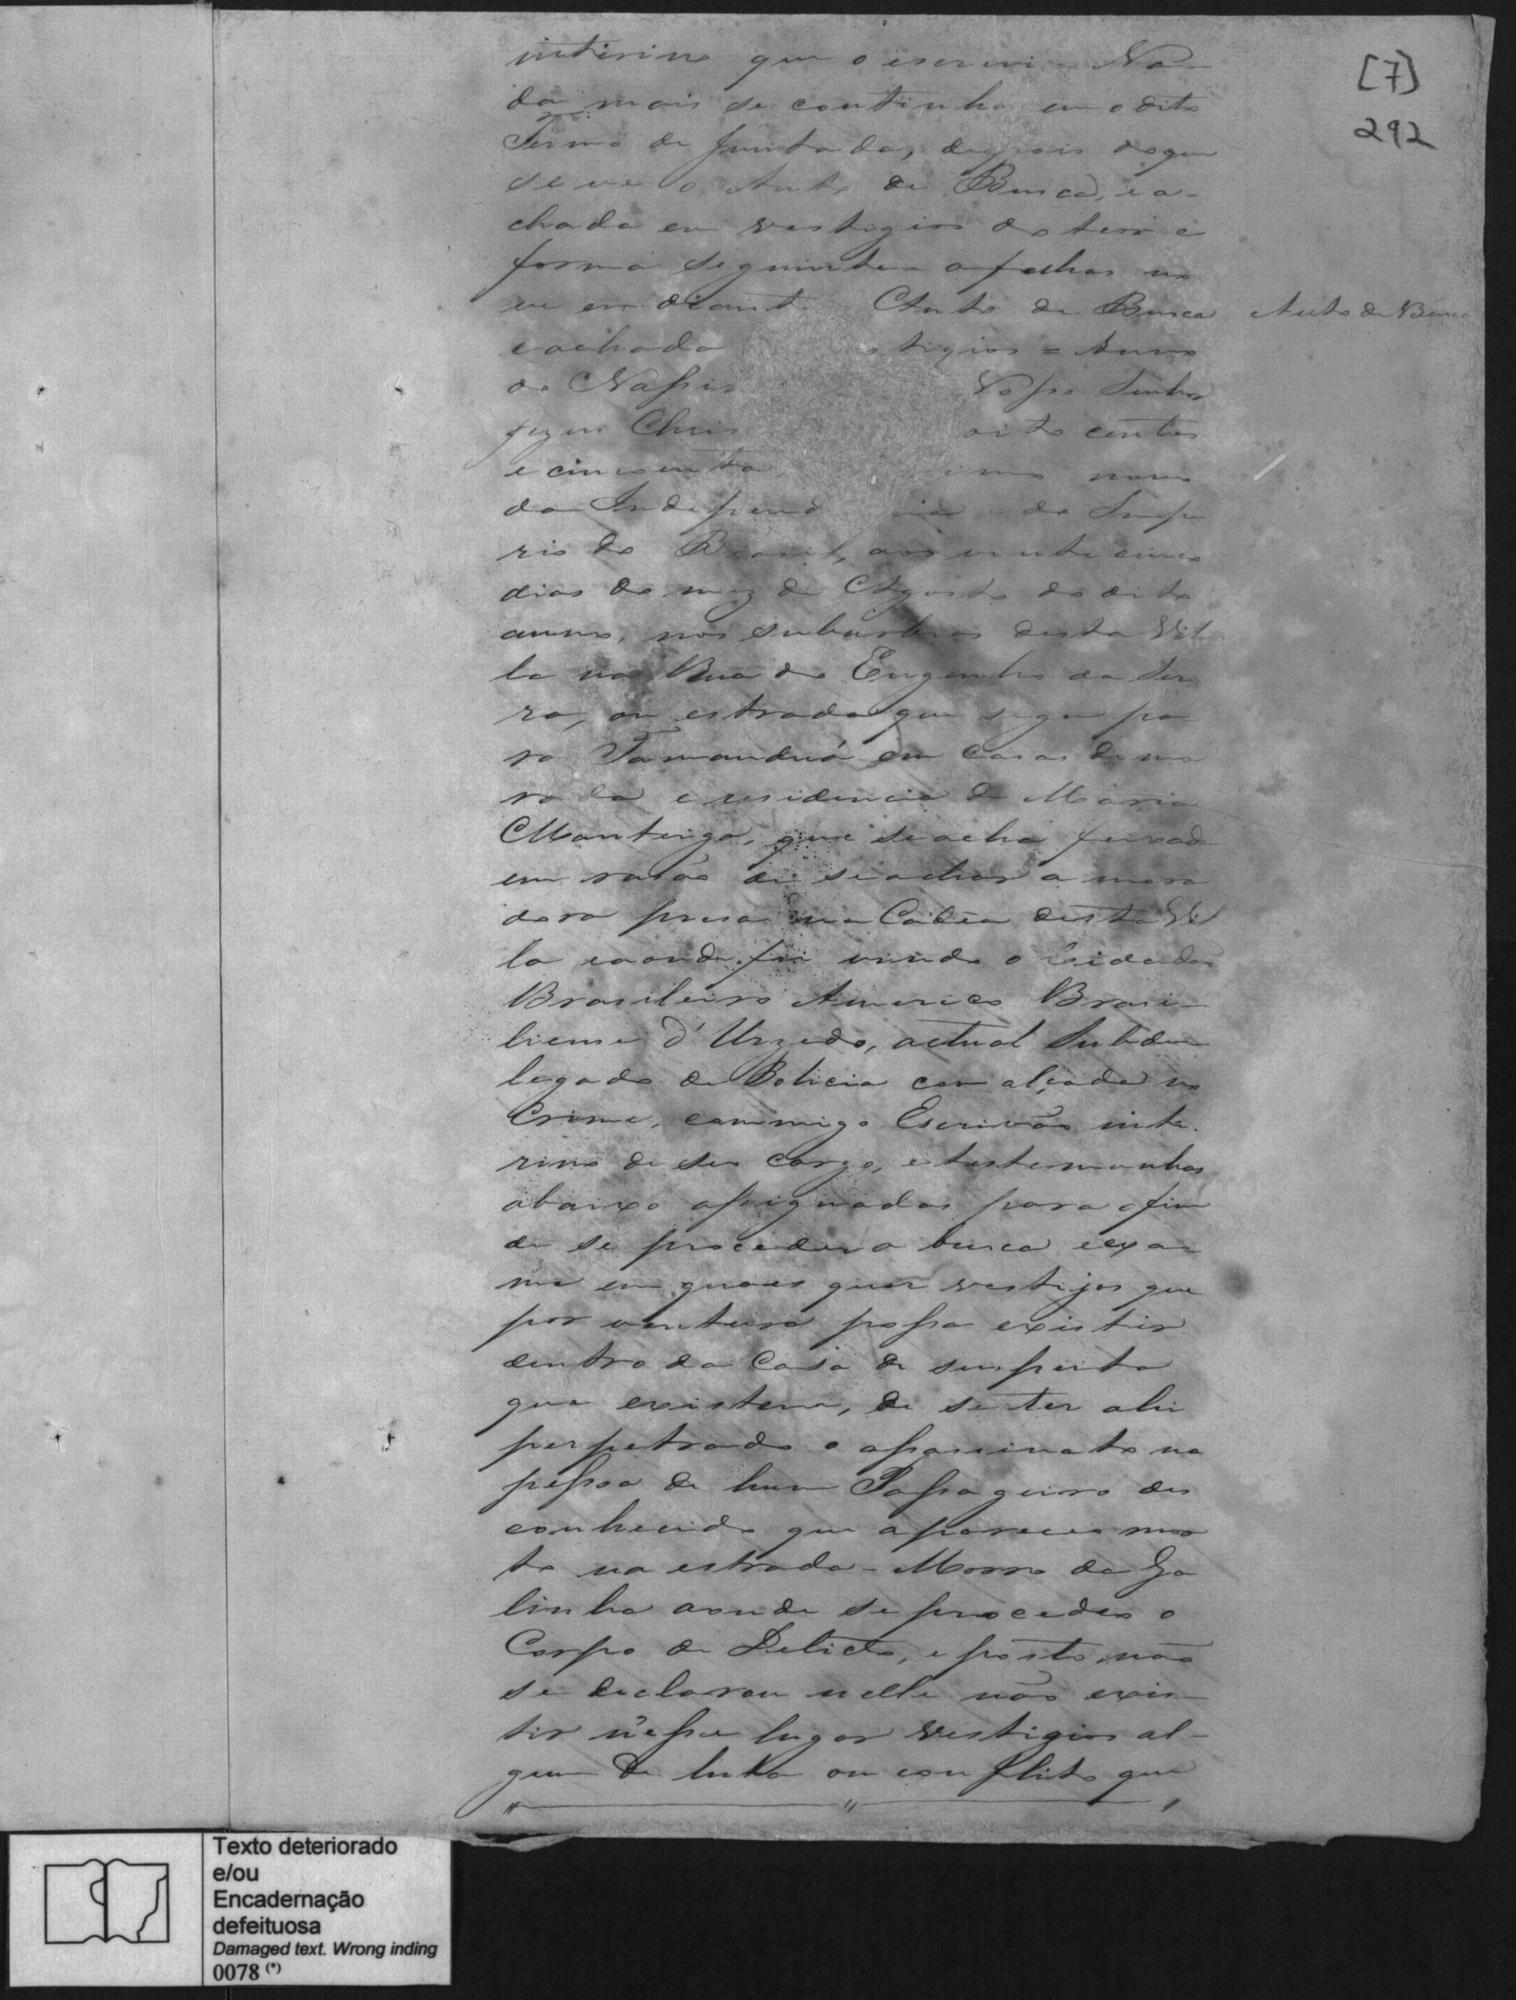 [7]
292
interino que o escrevi = Na-
da mais se continha em o dito
Termo de Juntada, depois do que
se ve o Auto de Busca, e a-
chada em vestigios do teor e
forma seguinte = a folhas no
ve em diant Auto de Busca
Auto de Busca
e achada stigios = Anno
do Nassim Nosso Senhor
Jezus Chris oito centos
e cincoenta imo nono
da Independ cia e do Impe
rio do Brasil, aos vinte cinco
dias do mez de Agosto do dito
anno, nos suburbios desta Vil
la na Rua do Engenho da Ser
ra, ou estrada que segue pa
ra Tamanduá em casas de mo
rada e residencia de Maria
Manteiga, que se acha feixada
em rasão de se achar a mora
dora presa na Cadea desta Vil
la e aonde foi vindo o Cidadão
Brasileiro Americo Brasi-
liense d'Urzedo, actual Subde
legado de Policia com alçada no
Crime, commigo Escrivão inte.
rino de seu cargo, e testemunhas
abaixo assignadas para o fim
de se proceder a busca e exa
me em quaes quer vestijos que
por ventura possa existir
dentro da Casa de suspeita
que existem, de se ter ahi
perpetrado o assassinato na
pessoa de hum Passageiro des
conhecido que apareceo mor
to na estrada - Morro da Ga
linha aonde se procedeo o
Corpo de Delicto, e posto não
se declarou nelle não exis-
tir n'esse lugar vestigios al-
gum de luta ou conflito que
Texto deteriorado
e/ou
Encadernação
defeituosa
Damaged text. Wrong inding
0078 (*)